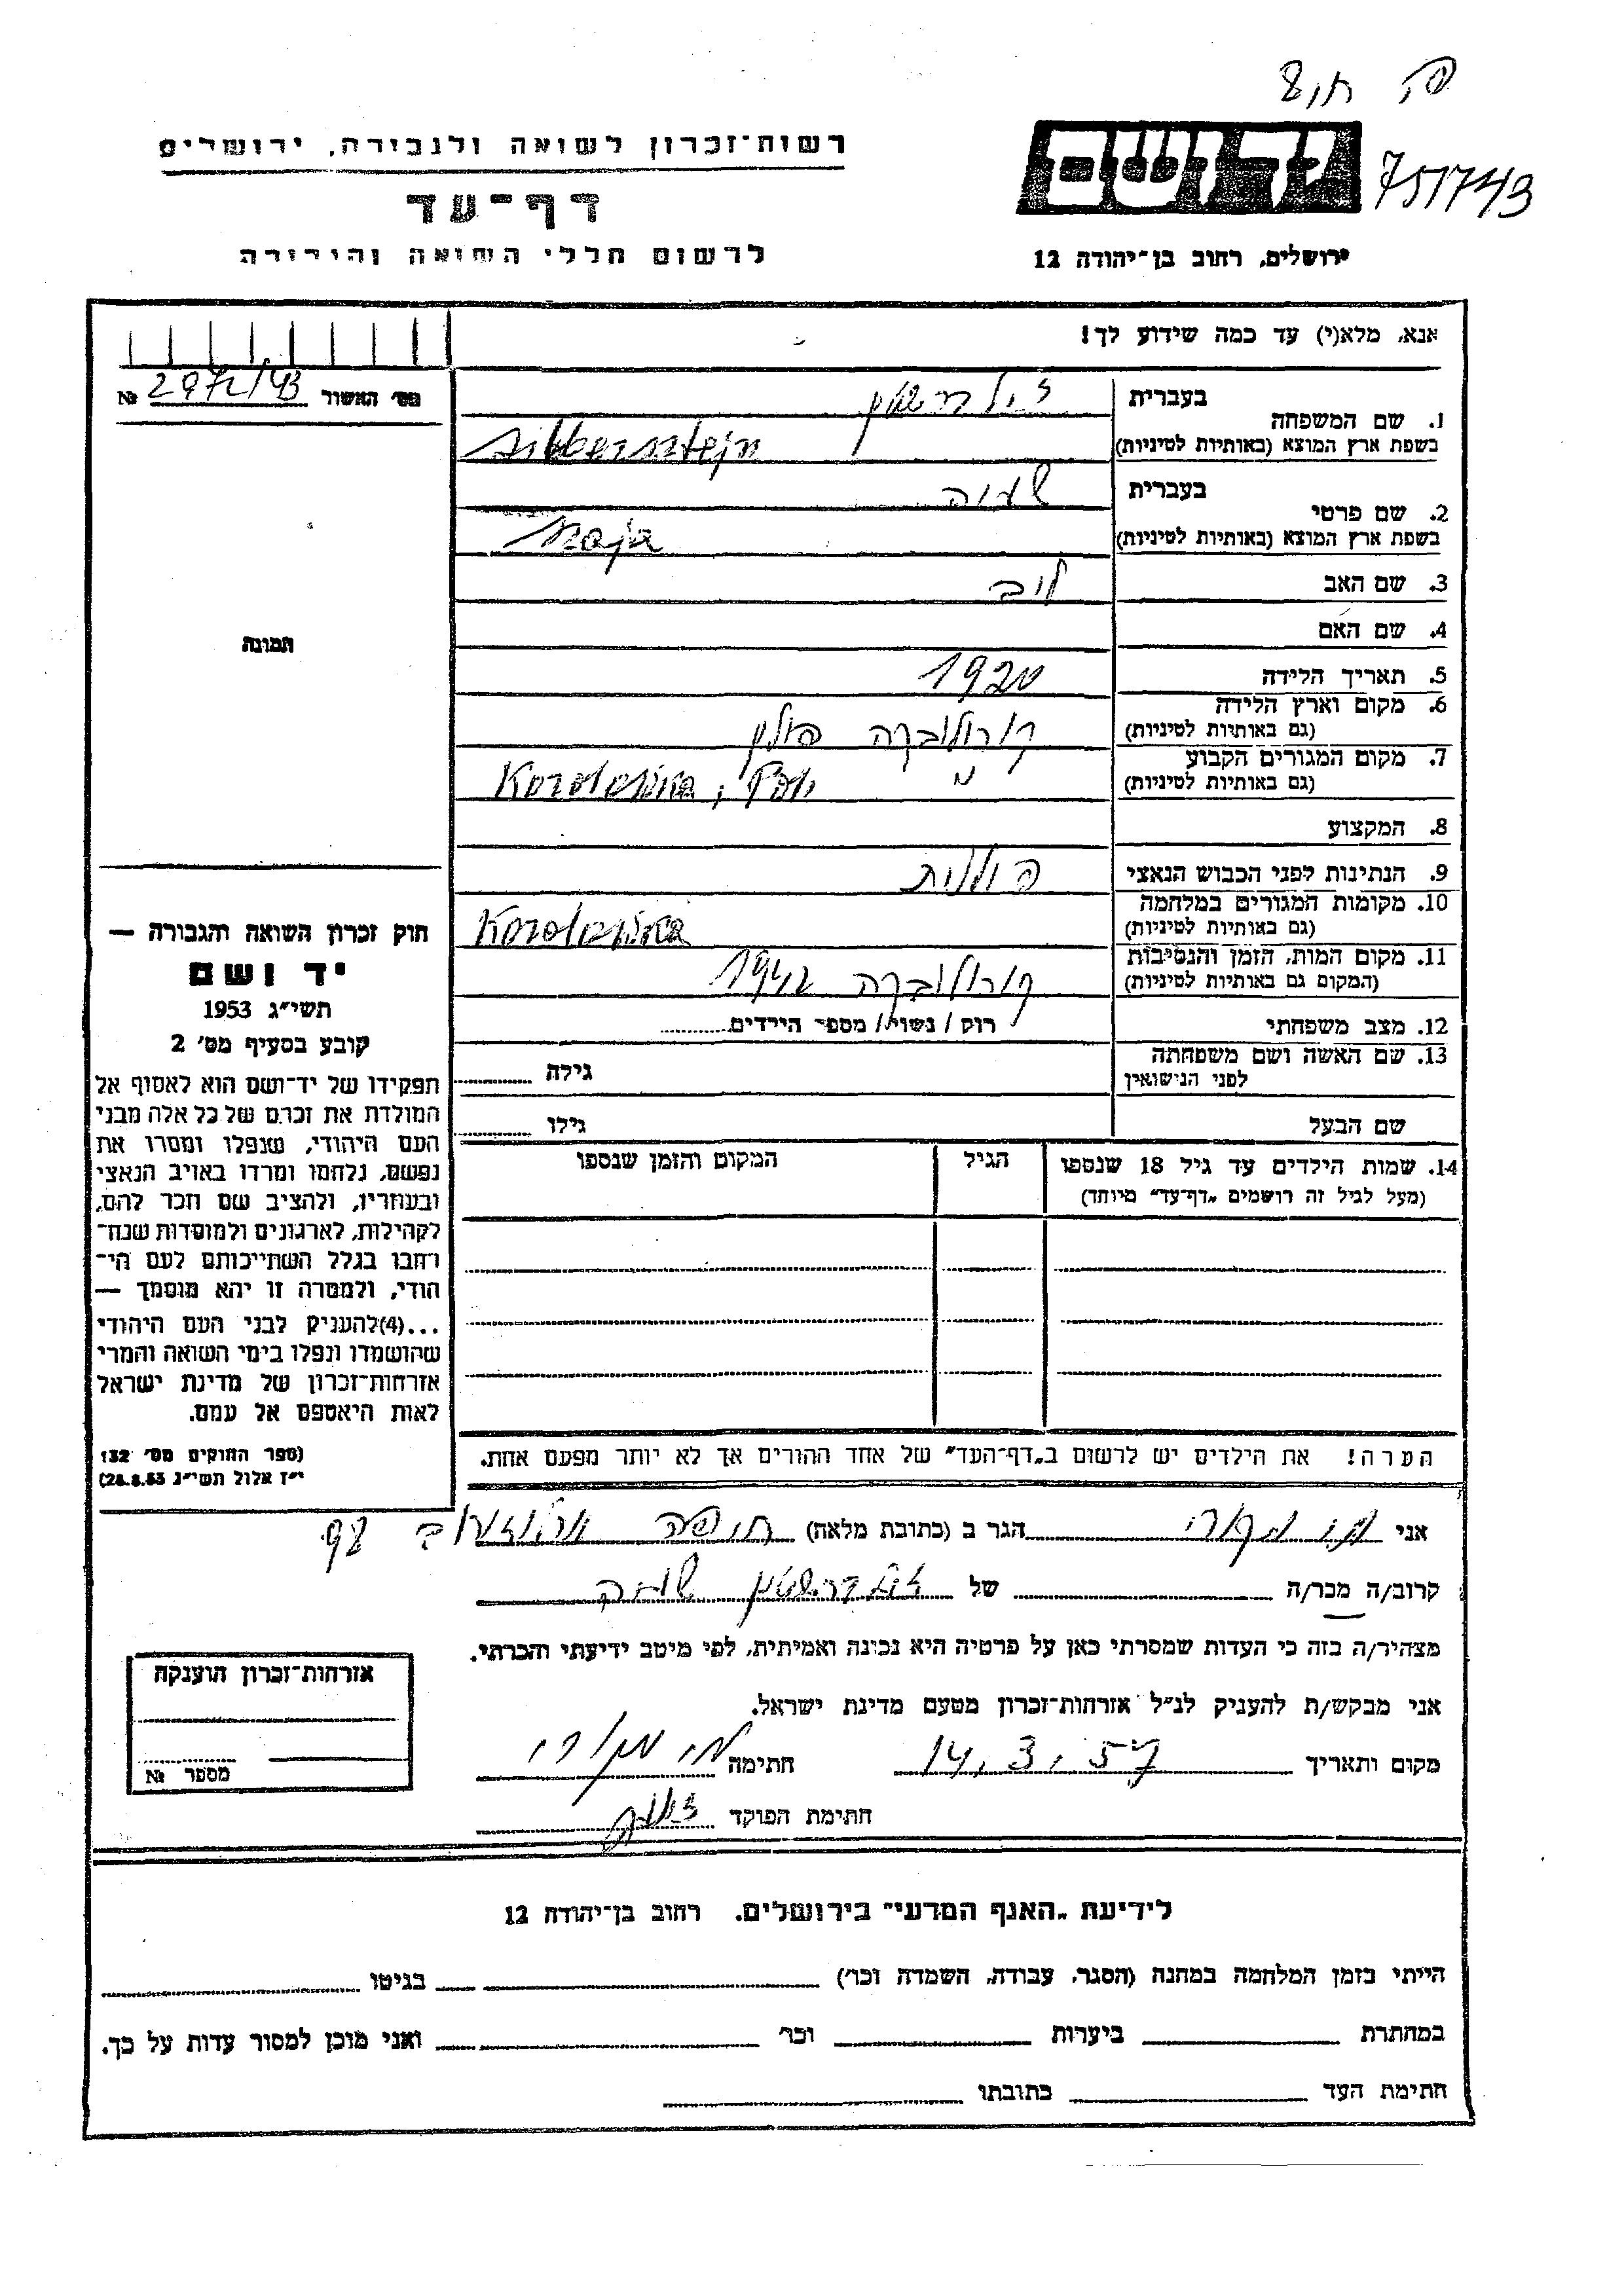 751743
רשות־זכרון לשואה ולגבורה, ירושלים
דף־עד
לרשום חללי השואה והגבורה
ירושלים, רחוב בן־יהודה 12
אנא, מלא(י) עד כמה שידוע לך!
מס׳ האשור 2972/43 №
1. שם המשפחה
בעברית זילברשטין
בשפת ארץ המוצא (באותיות לטיניות) Silberstejn
2. שם פרטי
בעברית שעיה
בשפת ארץ המוצא (באותיות לטיניות)
3. שם האב לייב
4. שם האם
5. תאריך הלידה 1920
6. מקום וארץ הלידה
(גם באותיות לטיניות) קורולובקה פולין
7. מקום המגורים הקבוע
(גם באותיות לטיניות) Korolowka, Pol
8. המקצוע
9. הנתינות לפני הכבוש הנאצי פולנית
10. מקומות המגורים במלחמה
(גם באותיות לטיניות) Korolowka
11. מקום המות, הזמן והנסיבות
(המקום גם באותיות לטיניות) קורולובקה 1942
12. מצב משפחתי רוק / נשוי / מספר הילדים
13. שם האשה ושם משפחתה
לפני הנישואין גילה
שם הבעל גילו
14. שמות הילדים עד גיל 18 שנספו
(מעל לגיל זה רושמים „דף־עד״ מיוחד)
הגיל
המקום והזמן שנספו
הערה! את הילדים יש לרשום ב„דף־העד״ של אחד ההורים אך לא יותר מפעם אחת.
תמונה
חוק זכרון השואה והגבורה —
יד ושם
תשי״ג 1953
קובע בסעיף מס׳ 2
תפקידו של יד־ושם הוא לאסוף אל
המולדת את זכרם של כל אלה מבני
העם היהודי, שנפלו ומסרו את
נפשם, נלחמו ומרדו באויב הנאצי
ובעוזריו, ולהציב שם וזכר להם,
לקהילות, לארגונים ולמוסדות שנח־
רבו בגלל השתייכותם לעם הי־
הודי, ולמטרה זו יהא מוסמך —
...(4)להעניק לבני העם היהודי
שהושמדו ונפלו בימי השואה והמרי
אזרחות־זכרון של מדינת ישראל
לאות היאספם אל עמם.
(ספר החוקים מס׳ 132
י״ז אלול תשי״ג 28.8.53)
אני הגר ב (כתובת מלאה) חיפה 98
קרוב/ה מכר/ה של זילברשטין שעיה
מצהיר/ה בזה כי העדות שמסרתי כאן על פרטיה היא נכונה ואמיתית, לפי מיטב ידיעתי והכרתי.
אני מבקש/ת להעניק לנ״ל אזרחות־זכרון מטעם מדינת ישראל.
מקום ותאריך 14.3.57 חתימה
חתימת הפוקד
אזרחות־זכרון הוענקה
מספר №
לידיעת „האגף המדעי״ בירושלים. רחוב בן־יהודה 12
הייתי בזמן המלחמה במחנה (הסגר, עבודה, השמדה וכו׳) בגיטו
במחתרת ביערות וכו׳ ואני מוכן למסור עדות על כך.
חתימת העד כתובתו